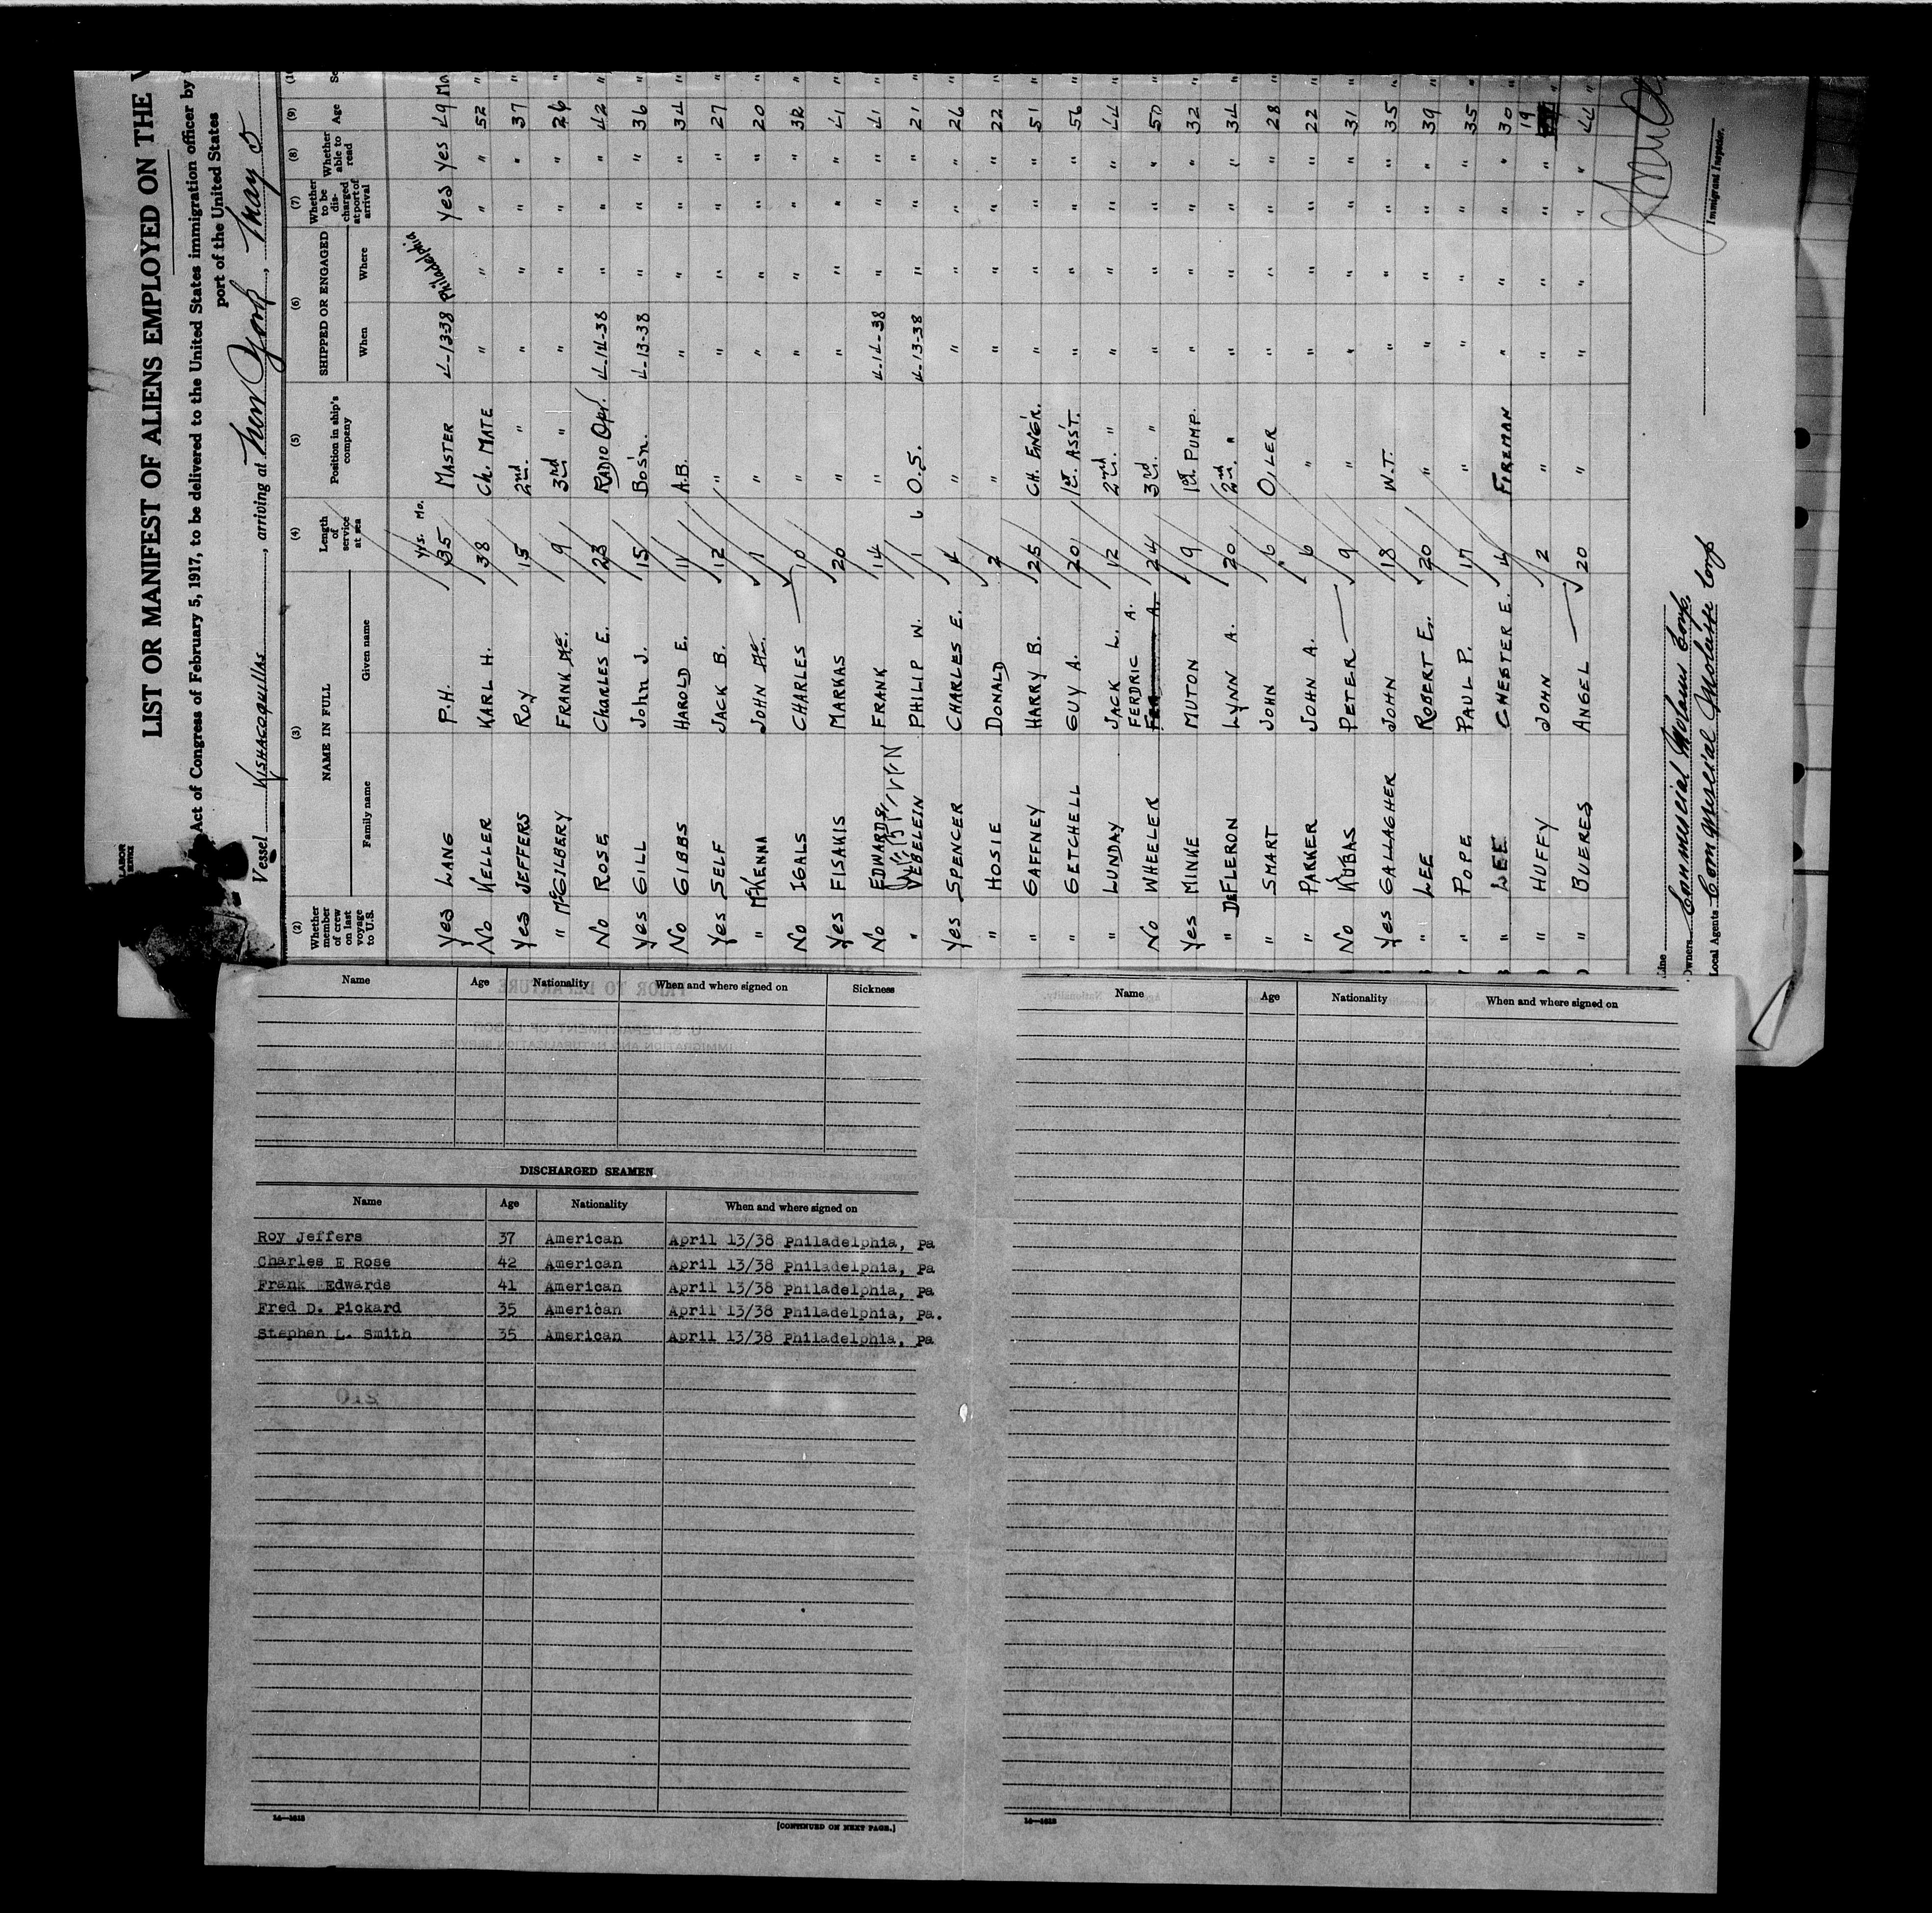 LABOR
LIST OR MANIFEST OF ALIENS EMPLOYED ON THE
Act of Congress of February 5, 1917, to be delivered to the United States immigration officer by
port of the United States
Vessel arriving at New York, May 5
(2) Whether member of crew on last voyage to U.S. (3) NAME IN FULL Family name Given name (4) Length of service at sea (5) Position in ship's company (6) SHIPPED OR ENGAGED When Where (7) Whether to be discharged at port of arrival (8) Whether able to read (9) Age
Yrs. Mo.
Yes LANG P.H. 35 MASTER 4-13-38 Philadelphia Yes Yes 49
No KELLER KARL H. 38 Ch. MATE " " " " 52 "
Yes JEFFERS ROY 15 2nd. " " " " " 37 "
" McGILBERY FRANK Mc. 9 3rd " " " " " 26 "
No ROSE CHARLES E. 23 RADIO Opr. 4-14-38 " " " 42 "
Yes GILL John J. 15 Bos'n. 4-13-38 " " " 36 "
No GIBBS HAROLD E. 11 A.B. " " " " 34 "
Yes SELF JACK B. 12 " " " " " 27 "
" McKENNA JOHN Mc. 1 " " " " " 20 "
No IGALS CHARLES 10 " " " " " 32 "
Yes FISAKIS MARKAS 20 " " " " " 41 "
No EDWARDS FRANK 14 " 4-14-38 " " " 41 "
" VEBELEIN PHILIP W. 1 6 O.S. 4-13-38 " " " 21 "
Yes SPENCER CHARLES E. 4 " " " " " 26 "
" HOSIE DONALD 2 " " " " " 22 "
" GAFFNEY HARRY B. 25 CH. ENG'R. " " " " 51 "
" GETCHELL GUY A. 20 1st. ASS'T. " " " " 56 "
" LUNDAY JACK L. 12 2nd. " " " " " 44 "
No WHEELER FERDRIC A. 24 3rd. " " " " " 50 "
Yes MINKE MUTON 9 1st. PUMP. " " " " 32 "
" DEFLERON LYNN A. 20 2nd. " " " " " 34 "
" SMART JOHN 6 OILER " " " " 28 "
" PARKER JOHN A. 6 " " " " " 22 "
No KUBAS PETER 9 " " " " " 31 "
Yes GALLAGHER JOHN 18 W.T. " " " " 35 "
" LEE ROBERT E. 20 " " " " " 39 "
" POPE PAUL P. 17 " " " " " 35 "
" LEE CHESTER E. 4 FIREMAN " " " " 30 "
" HUFFY JOHN 2 " " " " " 19 "
" BUERES ANGEL 20 " " " " " 44 "
Line
Owners
Local Agents
Immigrant Inspector.
Name Age Nationality When and where signed on Sickness
DISCHARGED SEAMEN
Name Age Nationality When and where signed on
Roy Jeffers 37 American April 13/38 Philadelphia, Pa
Charles E Rose 42 American April 13/38 Philadelphia, Pa
Frank Edwards 41 American April 13/38 Philadelphia, Pa
Fred D. Pickard 35 American April 13/38 Philadelphia, Pa.
Stephen L. Smith 35 American April 13/38 Philadelphia, Pa
14—1618
[CONTINUED ON NEXT PAGE.]
Name Age Nationality When and where signed on
14—1618